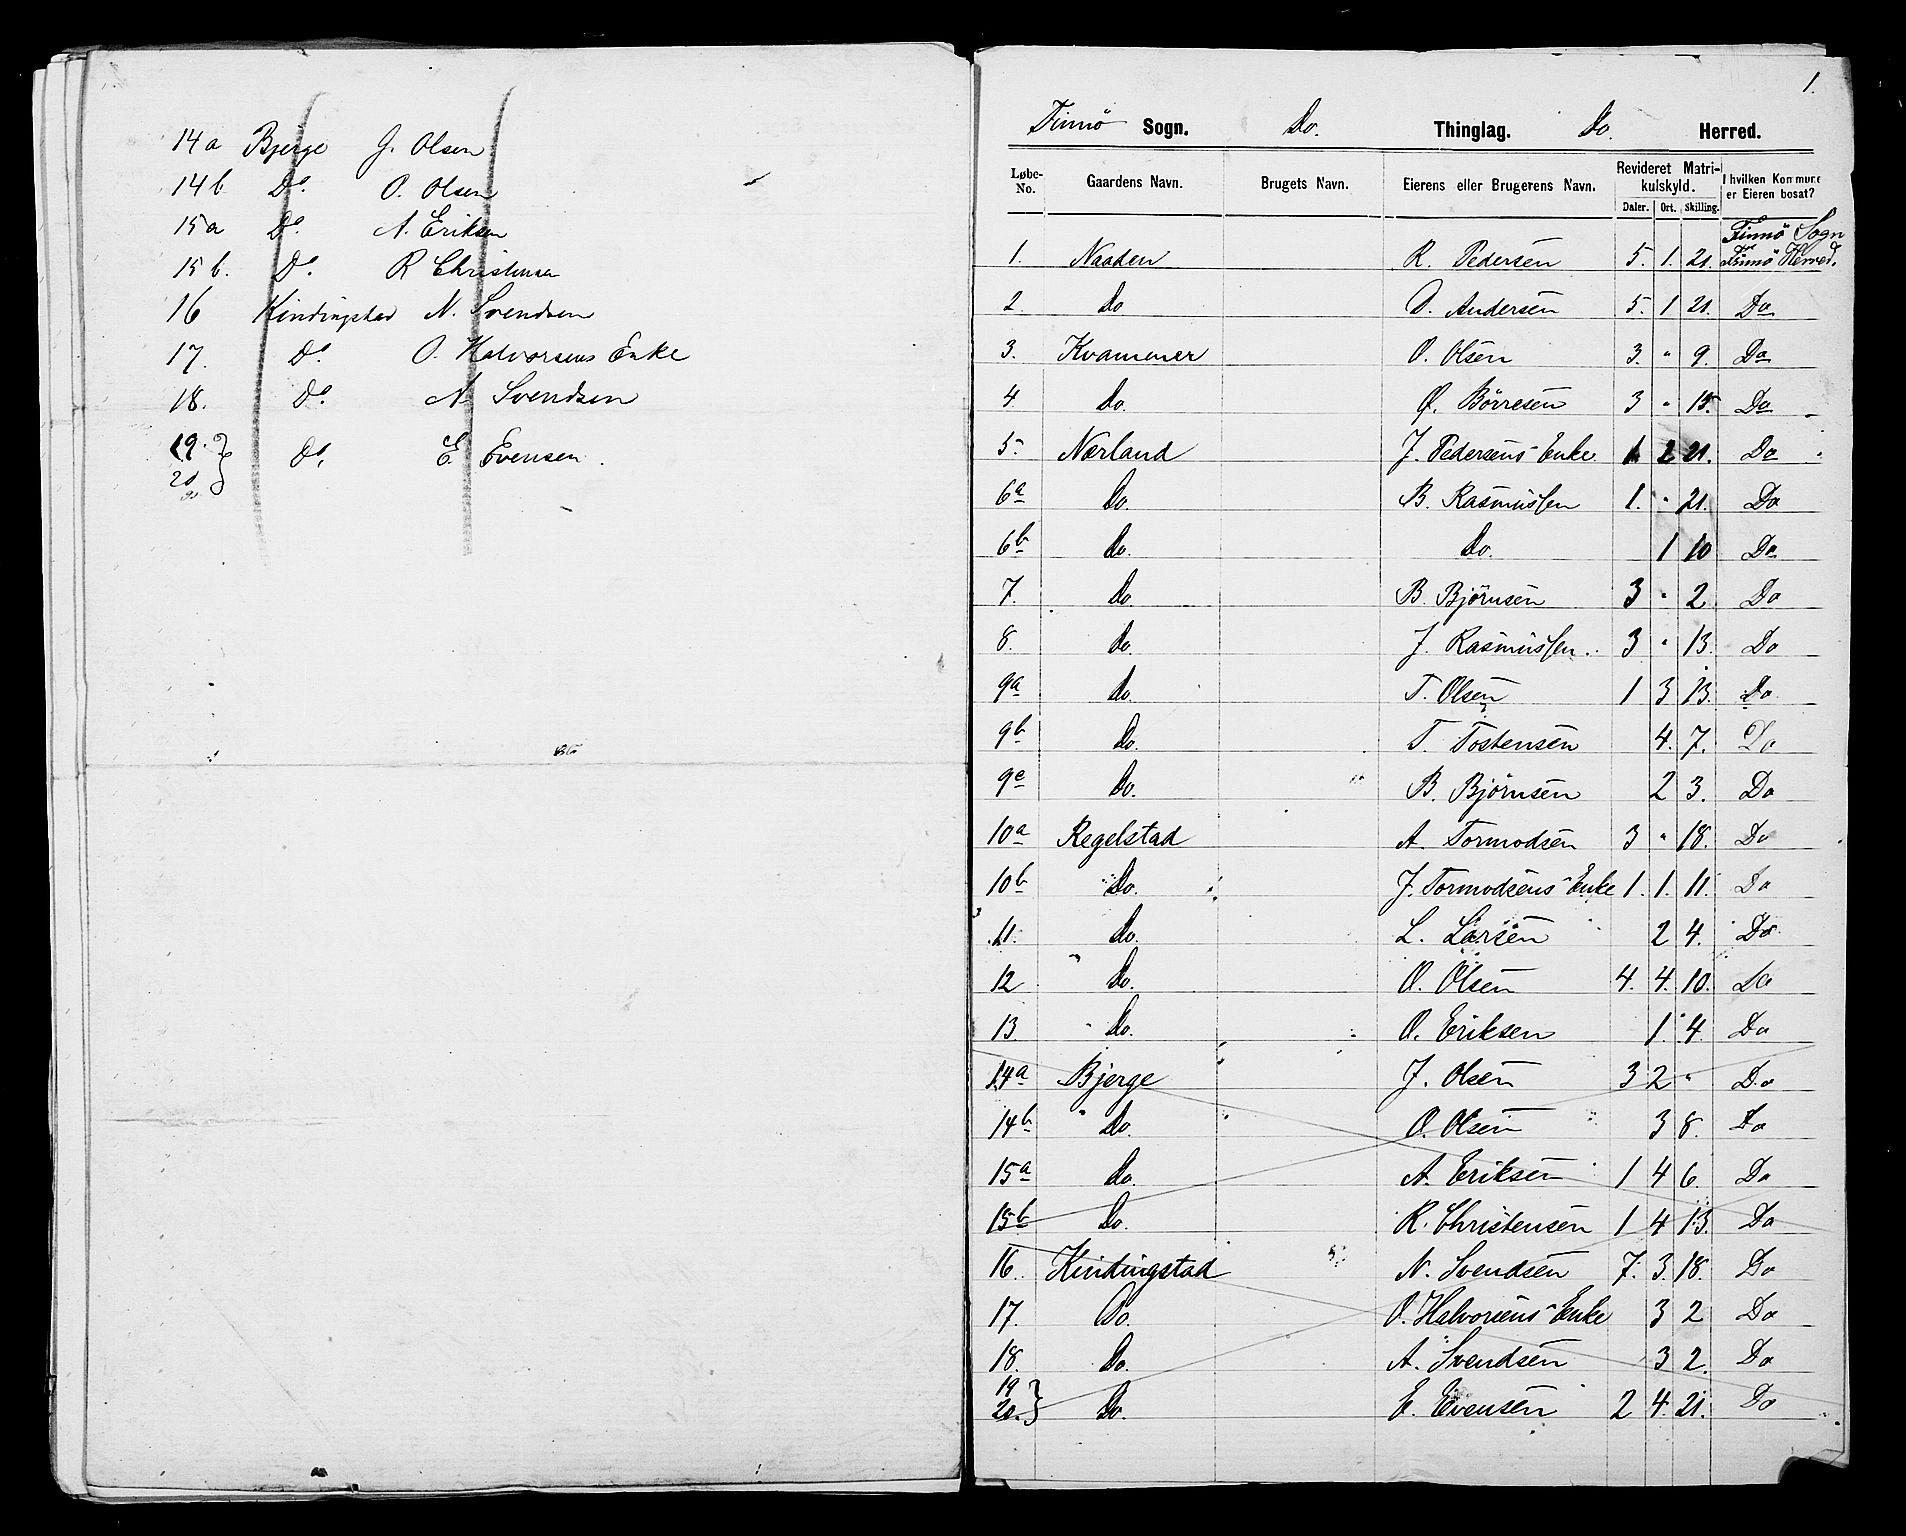 14a Bjerge J. Olsen
14b Do. O. Olsen
15a Do. A. Eriksen
15b. Do. R Christensen
16 Kindingstad N. Svendsen
17. Do. O. Halvorsens Enke
18. Do. A. Svendsen
19. } Do. E. Evensen.
20
1.
Finnö Sogn. Do. Thinglag. Do. Herred.
Løbe-No. Gaardens Navn. Brugets Navn. Eierens eller Brugerens Navn. Revideret Matrikulskyld. Daler. Ort. Skilling. I hvilken Kommune er Eieren bosat?
1. Naaden R. Pedersen 5. 1. 21. Finnö Sogn Finnö Herred.
2. Do O. Andersen 5. 1 21. Do
3. Kvammer O. Olsen 3. " 9. Do
4 Do. Ø. Börresen 3 " 15. Do
5. Nærland J. Pedersens Enke 1 2 21. Do
6a Do. B. Rasmussen 1. " 21. Do
6b Do. Do. 1 10 Do
7. Do. B. Bjørnsen 3 " 2 Do
8. Do. J. Rasmussen. 3 " 13. Do
9a Do. T. Olsen 1 3 13. Do
9b Do. T. Tostensen 4. 7. Do
9c Do. B. Bjørnsen 2 3. Do
10a Regelstad A. Tormodsen 3 " 18. Do
10b Do. J. Tormodsens Enke 1. 1. 11. Do
11. Do. L. Larsen 2 4. Do
12 Do. O. Olsen 4. 4. 10. Do
13 Do. O. Eriksen 1. 4. Do
14a Bjerge J. Olsen 3 2 " Do
14b Do. O. Olsen 3 8. Do
15a Do. A. Eriksen 1 4 6. Do
15b Do. R. Christensen 1 4 13. Do
16. Kindingstad N. Svendsen 7. 3. 18. Do
17. Do. O. Halvorsens Enke 3 2 Do
18. Do. A. Svendsen 3 2. Do
19 } Do. E. Evensen 2 4. 21. Do
20.